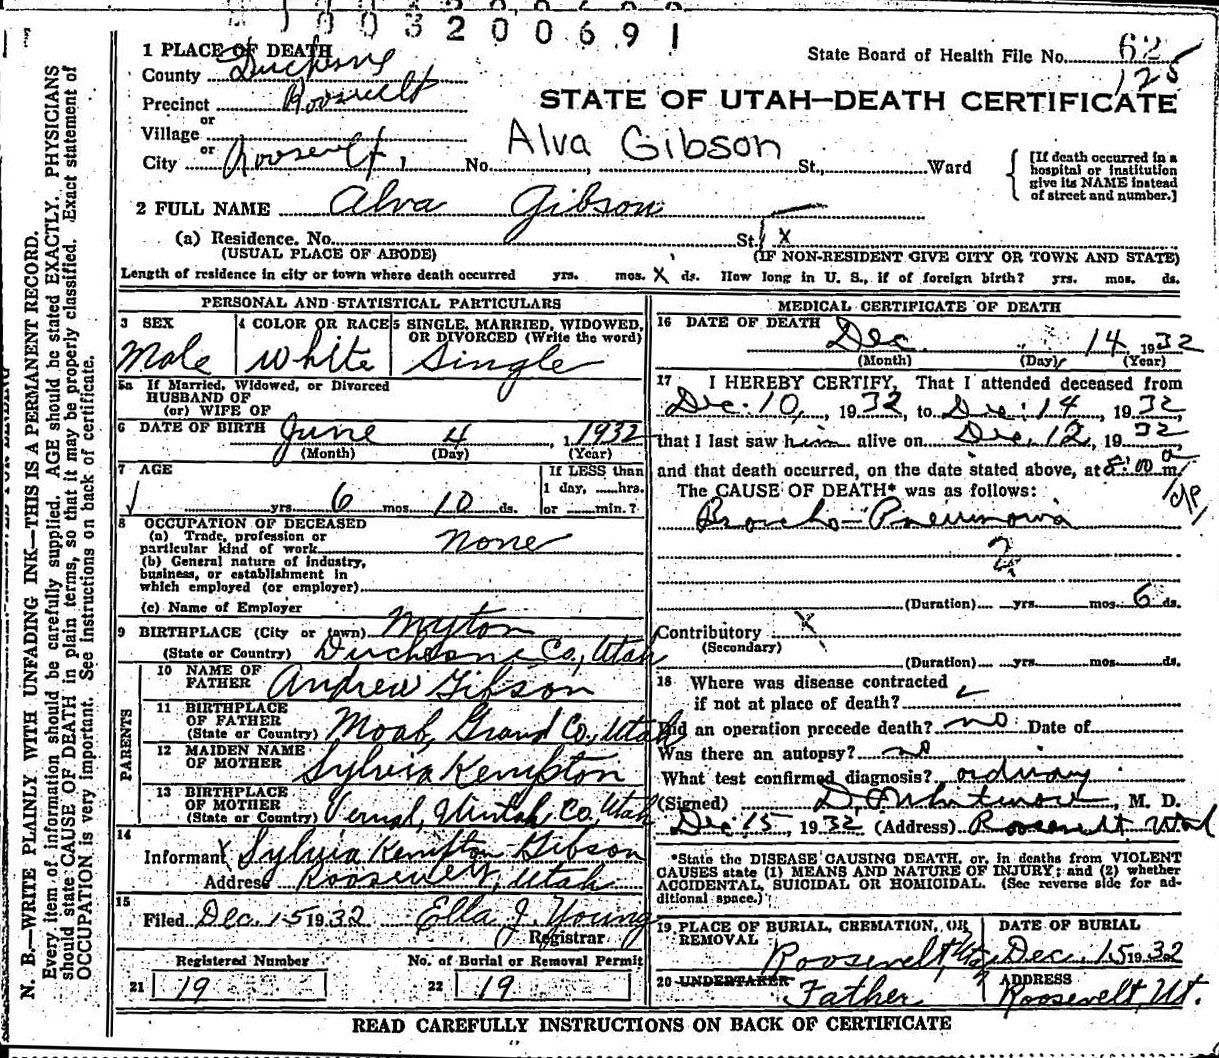 1003200691
1 PLACE OF DEATH
State Board of Health File No. 62
125
County Duchesne
Precinct Roosevelt
STATE OF UTAH—DEATH CERTIFICATE
or
Village
or
City Roosevelt, No. St., Ward
Alva Gibson
[If death occurred in a hospital or institution give its NAME instead of street and number.]
2 FULL NAME Alva Gibson
(a) Residence. No. St. X
(USUAL PLACE OF ABODE) (IF NON-RESIDENT GIVE CITY OR TOWN AND STATE)
Length of residence in city or town where death occurred yrs. mos. X ds. How long in U. S., if of foreign birth? yrs. mos. ds.
PERSONAL AND STATISTICAL PARTICULARS
3 SEX 4 COLOR OR RACE 5 SINGLE, MARRIED, WIDOWED, OR DIVORCED (Write the word)
Male White Single
5a If Married, Widowed, or Divorced
HUSBAND OF
(or) WIFE OF
6 DATE OF BIRTH June 4, 1 1932
(Month) (Day) (Year)
7 AGE If LESS than
yrs. 6 mos. 10 ds. 1 day, hrs.
or min.?
8 OCCUPATION OF DECEASED
(a) Trade, profession or
particular kind of work none
(b) General nature of industry,
business, or establishment in
which employed (or employer)
(c) Name of Employer
9 BIRTHPLACE (City or town) Myton
(State or Country) Duchesne Co., Utah
PARENTS
10 NAME OF FATHER Andrew Gibson
11 BIRTHPLACE OF FATHER
(State or Country) Moab, Grand Co., Utah
12 MAIDEN NAME OF MOTHER Sylvia Kempton
13 BIRTHPLACE OF MOTHER
(State or Country) Vernal, Uintah Co., Utah
14
Informant X Sylvia Kempton Gibson
Address Roosevelt, Utah
15
Filed Dec. 15 1932 Ella J. Young
Registrar
Registered Number No. of Burial or Removal Permit
21 19 22 19
MEDICAL CERTIFICATE OF DEATH
16 DATE OF DEATH Dec 14, 1932
(Month) (Day) (Year)
17 I HEREBY CERTIFY, That I attended deceased from
Dec. 10, 1932, to Dec. 14, 1932,
that I last saw him alive on Dec. 12, 1932
and that death occurred, on the date stated above, at 8:00 a m.
The CAUSE OF DEATH* was as follows:
Broncho-Pneumonia
(Duration) yrs. mos. 6 ds.
Contributory X
(Secondary)
(Duration) yrs. mos. ds.
18 Where was disease contracted
if not at place of death?
Did an operation precede death? no Date of
Was there an autopsy? no
What test confirmed diagnosis? ordinary
(Signed) , M. D.
Dec 15, 1932 (Address) Roosevelt Utah
*State the DISEASE CAUSING DEATH, or, in deaths from VIOLENT
CAUSES state (1) MEANS AND NATURE OF INJURY; and (2) whether
ACCIDENTAL, SUICIDAL OR HOMICIDAL. (See reverse side for ad-
ditional space.)
19 PLACE OF BURIAL, CREMATION, OR REMOVAL DATE OF BURIAL
Roosevelt, Ut. Dec. 15 1932
20 UNDERTAKER ADDRESS
Father Roosevelt, Ut.
READ CAREFULLY INSTRUCTIONS ON BACK OF CERTIFICATE
N. B.—WRITE PLAINLY WITH UNFADING INK—THIS IS A PERMANENT RECORD.
Every item of information should be carefully supplied. AGE should be stated EXACTLY. PHYSICIANS
should state CAUSE OF DEATH in plain terms, so that it may be properly classified. Exact statement of
OCCUPATION is very important. See instructions on back of certificate.